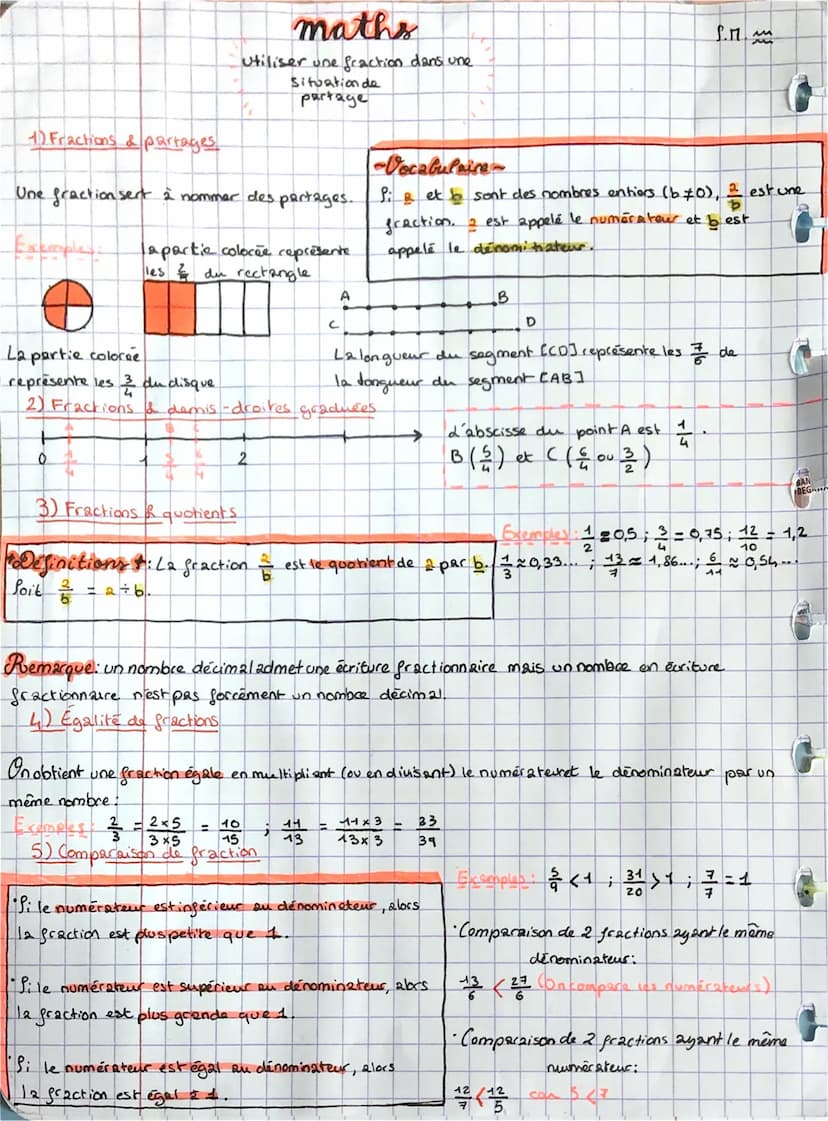 maths
S.M.
Utiliser une fraction dans une
situation de
partage
1) Fractions & partages
Une fraction sert à nommer des partages.
~Vocabulaire~
Si a et b sont des nombres entiers (b ≠ 0), a/b est une
fraction. a est appelé le numérateur et b est
appelé le dénominateur.
Exemples:
la partie coloréé représente
les 2/5 du rectangle
A B
C D
La partie coloréé
représente les 3/4 du disque
La longueur du segment [CD] représente les 7/6 de
la longueur du segment [AB]
2) Fractions & demis-droites graduées
A B C
0 1/4 1 5/4 6/4 2
d'abscisse du point A est 1/4.
B (5/4) et C (6/4 ou 3/2)
BAN
DEGRA
3) Fractions & quotients
Exemples: 1/2 = 0,5 ; 3/4 = 0,75 ; 12/10 = 1,2
1/3 ≈ 0,33... ; 13/7 ≈ 1,86... ; 6/11 ≈ 0,54...
Définitions: La fraction a/b est le quotient de a par b.
Soit a/b = a ÷ b.
Remarque: un nombre décimal admet une écriture fractionnaire mais un nombre en écriture
fractionnaire n'est pas forcément un nombre décimal.
4) Égalité de fractions
On obtient une fraction égale en multipliant (ou en divisant) le numérateur et le dénominateur par un
même nombre :
Exemples: 2/3 = 2×5/3×5 = 10/15 ; 11/13 = 11×3/13×3 = 33/39
5) Comparaison de fraction
• Si le numérateur est inférieur au dénominateur, alors
la fraction est plus petite que 1.
• Si le numérateur est supérieur au dénominateur, alors
la fraction est plus grande que 1.
• Si le numérateur est égal au dénominateur, alors
la fraction est égal à 1.
Exemples: 5/9 < 1 ; 31/20 > 1 ; 7/7 = 1
• Comparaison de 2 fractions ayant le même
dénominateur:
13/6 < 27/6 (On compare les numérateurs)
• Comparaison de 2 fractions ayant le même
numérateur:
12/7 < 12/5 car 5 < 7